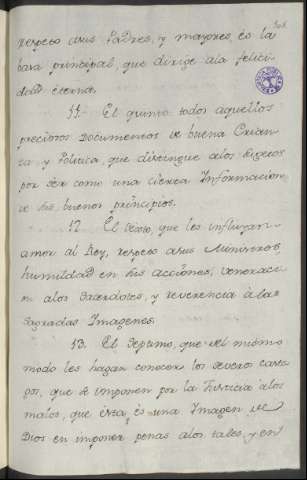 respeto asus Padres, y mayores, es la
basa principal, que dirige ala felici
dad eterna.
11. El quinto todos aquellos
preciosos Documentos de buena Crian
za y Politica, que distingue alos sugetos
por ser como una cierta Informacion
de sus buenos principios.
12. El Sexto, que les influyan
amor al Rey, respeto asus Ministros
humildad en sus acciones, veneracio
n alos Sacerdotes, y reverencia a las
Sagradas Imagenes.
13. El Septimo, que del mismo
modo les hagan conocer los severos casti
gos, que se imponen por la Justicia alos
malos, que esta es una Imagen de
Dios en imponer penas alos tales, y en